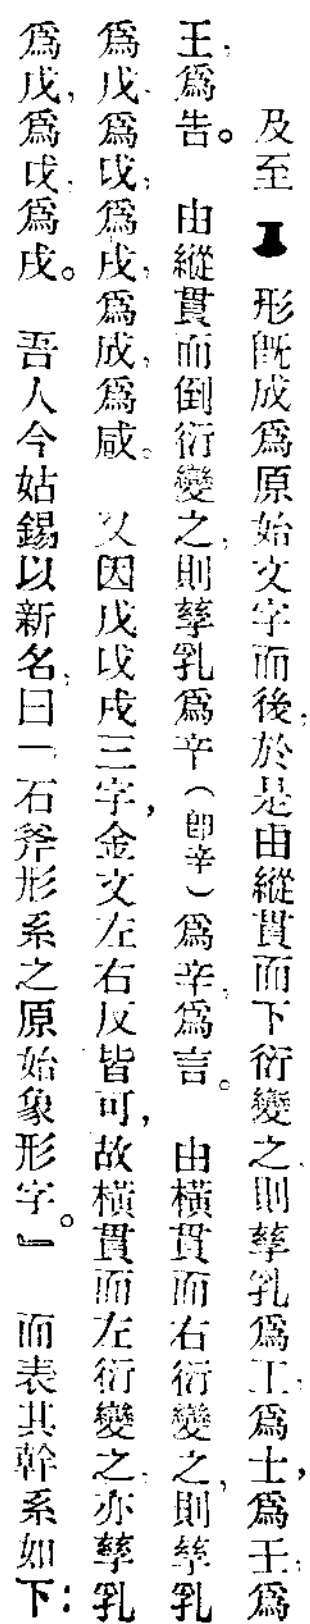 及至 形旣成爲原始文字而後，於是由縱貫而下衍變之，則孳乳爲工，爲士，爲王，爲
王，爲告。 由縱貫而倒衍變之，則孳乳爲䇂（卽辛）爲辛，爲言。 由橫貫而右衍變之，則孳乳
爲戊，爲戉，爲戌，爲成，爲咸。 又因戊戉戌三字，金文左右反皆可，故橫貫而左衍變之，亦孳乳
爲戊，爲戉，爲戌。 吾人今姑錫以新名，曰「石斧形系之原始象形字。』 而表其幹系如下：